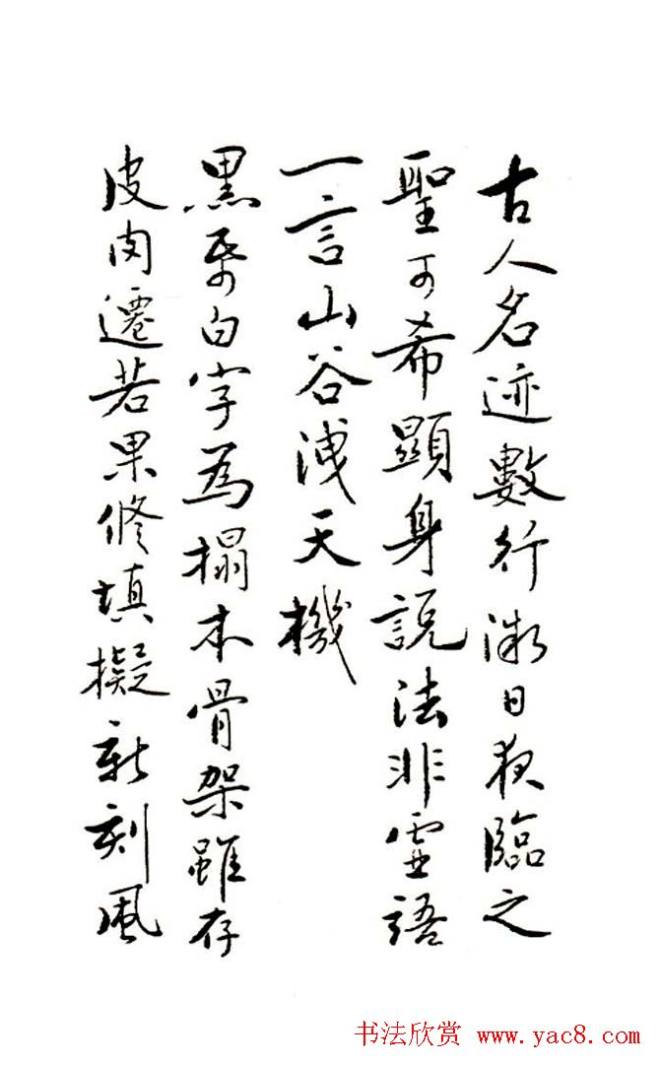 古人名迹數行微日夜臨之
聖可希顯身說法非虛語
一言山谷洩天機
黑紙白字為搨本骨架雖存
皮肉遷若果修填擬新刻風
书法欣赏 www.yac8.com